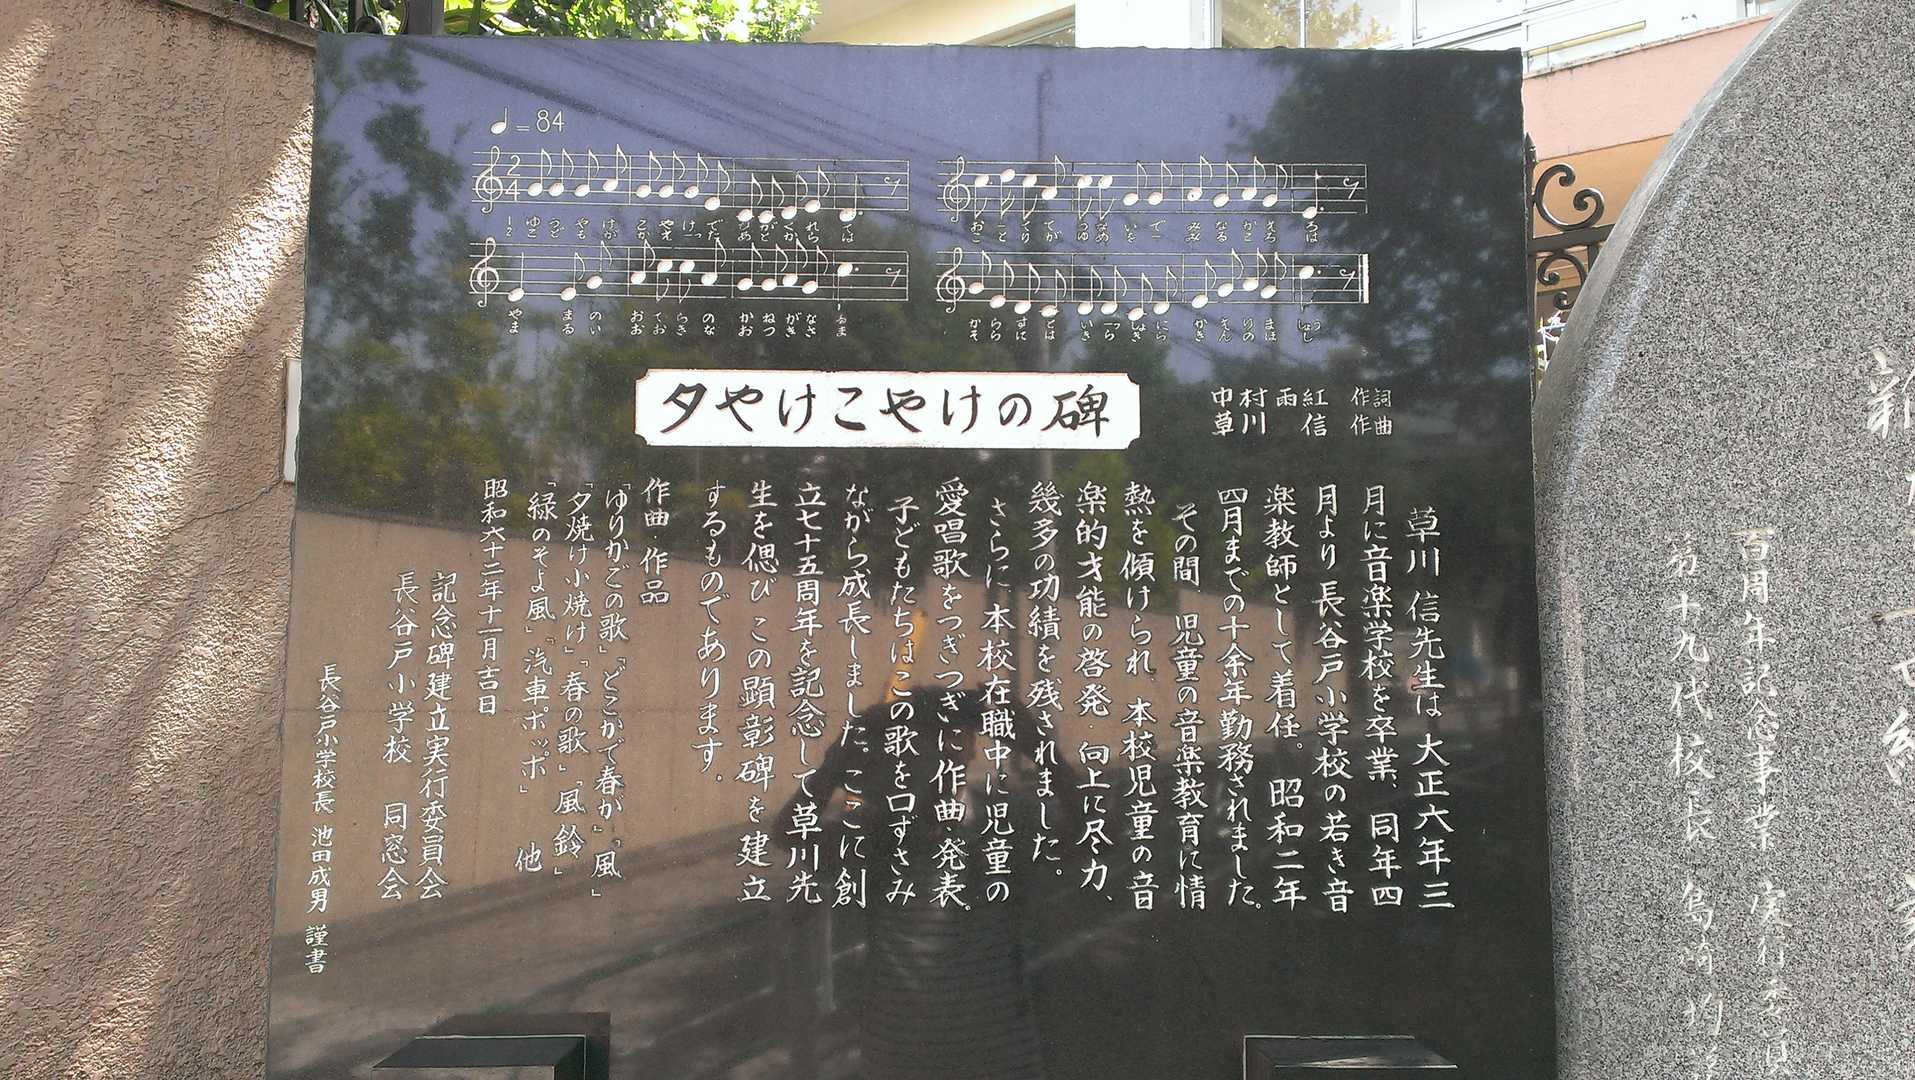 ♩=84
夕やけこやけの碑
中村雨紅 作詞
草川 信 作曲
草川 信先生は 大正六年三
月に音楽学校を卒業、同年四
月より長谷戸小学校の若き音
楽教師として着任。昭和二年
四月までの十余年勤務されました。
その間、児童の音楽教育に情
熱を傾けられ、本校児童の音
楽的才能の啓発、向上に尽力、
幾多の功績を残されました。
さらに、本校在職中に児童の
愛唱歌をつぎつぎに作曲・発表。
子どもたちはこの歌を口ずさみ
ながら成長しました。ここに創
立七十五周年を記念して草川先
生を偲び この顕彰碑を建立
するものであります。
作曲・作品
「ゆりかごの歌」「どこかで春か」「風」
「夕焼け小焼け」「春の歌」「風鈴」
「緑のそよ風」「汽車ポッポ」 他
昭和六十二年十一月吉日
記念碑建立実行委員会
長谷戸小学校 同窓会
長谷戸小学校長 池田成男 謹書
百周年記念事業 実行委員
第十九代校長 島崎 均